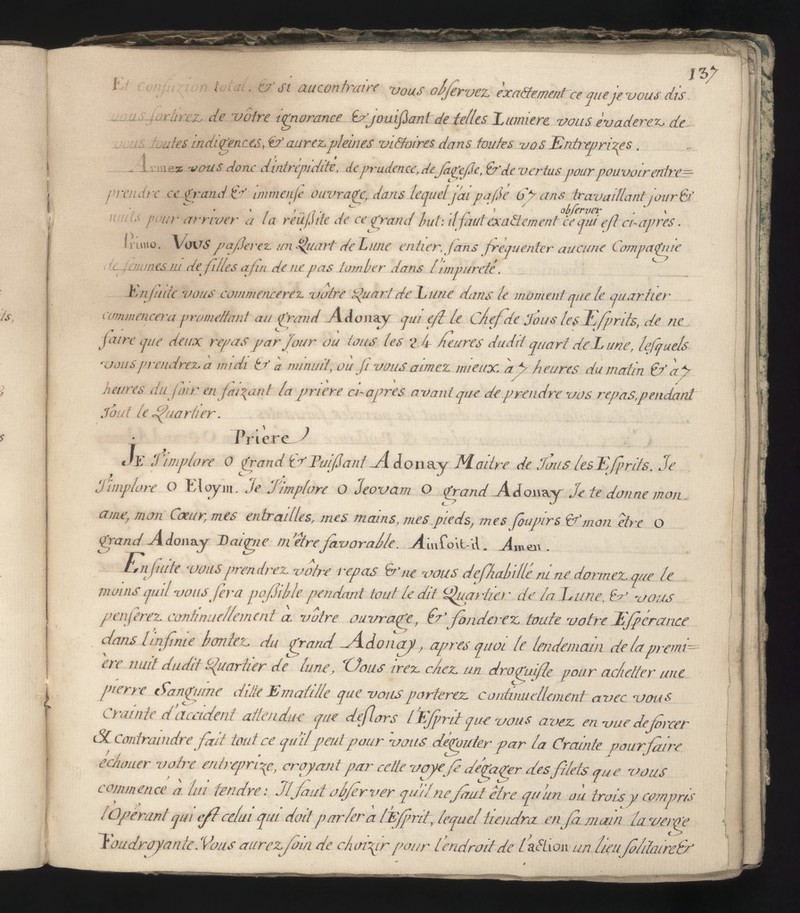 137
Et confuzion total. & si aucontraire vous observez éxactement ce que je vous dis
vous sortirez de vôtre ignorance & jouißant de telles Lumiere vous évaderez de
vous toutes indigences, & aurez pleines victoires dans toutes vos Entreprizes.
Armez vous donc d'intrépidité, de prudence, de sageße, & de vertus pour pouvoir entre=
prendre ce grand & immense ouvrage, dans lequel j'ai paßé 67 ans travaillant jour &
nuits pour arriver à la réüßite de ce grand but: il faut éxactement observer ce qui est ci-après.
Primo. Vous paßerez un Quart de Lune entier, sans fréquenter aucune Compagnie
de femmes ni de filles afin de ne pas tomber dans l'impureté.
Ensuite vous commencerez vôtre Quart de Lune dans le moment que le quartier
commencera promettant au grand Adonay qui est le Chef de Tous les Esprits, de ne
faire que deux repas par Jour où tous les 24 heures dudit quart de Lune, lesquels
vous prendrez à midi & à minuit, où si vous aimez mieux à 7 heures du matin & à 7
heures du soir en faizant la prière ci-après avant que de prendre vos repas, pendant
Tout le Quartier.
Prière
Je T'implore O grand & Puißant Adonay Maitre de Tous les Esprits. Je
T'implore O Eloym. Je T'implore O Jeovam O grand Adonay Je te donne mon
ame, mon Cœur, mes entrailles, mes mains, mes pieds, mes soupirs & mon être O
grand Adonay Daigne m'être favorable. Ainsoit-il. Amen.
Ensuite vous prendrez vôtre repas & ne vous deshabillé ni ne dormez que le
moins quil vous sera poßible pendant tout le dit Quartier de la Lune, & vous
penserez continuellement à vôtre ouvrage, & fonderez toute votre Espérance
dans l'infinie bontez du grand Adonay, apres quoi le lendemain de la premi=
ère nuit dudit Quartier de lune, Vous irez chez un droguiste pour achetter une
pierre Sanguine ditte Ematille que vous porterez continuellement avec vous
Crainte d'accident attendue que deslors l'Esprit que vous avez en vue de forcer
& contraindre fait tout ce qu'il peut pour vous dégouter par la Crainte pour faire
échouer votre entreprize, croyant par cette voye se dégager des filets que vous
commencé à lui tendre: Il faut observer qu'il ne faut être qu'un où trois y compris
l'Opérant qui est celui qui doit parler à l'Esprit, lequel tiendra en sa main la verge
Foudroyante. Vous aurez soin de choizir pour l'endroit de l'action un lieu solitaire &